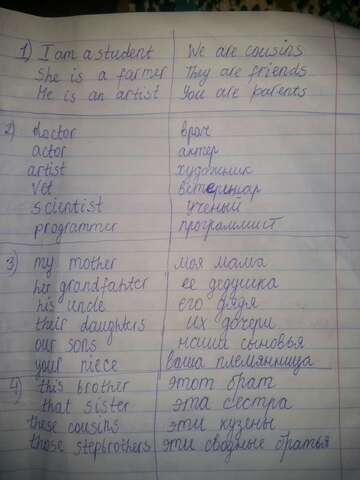 1) I am a student We are cousins
She is a farmer They are friends
He is an artist You are parents
2) doctor врач
actor актер
artist художник
vet ветеринар
scientist ученый
programmer программист
3) my mother моя мама
her grandfahter ее дедушка
his uncle его дядя
their daughters их дочери
our sons наши сыновья
your niece ваша племянница
4) this brother этот брат
that sister эта сестра
these cousins эти кузены
those stepbrothers эти сводные братья